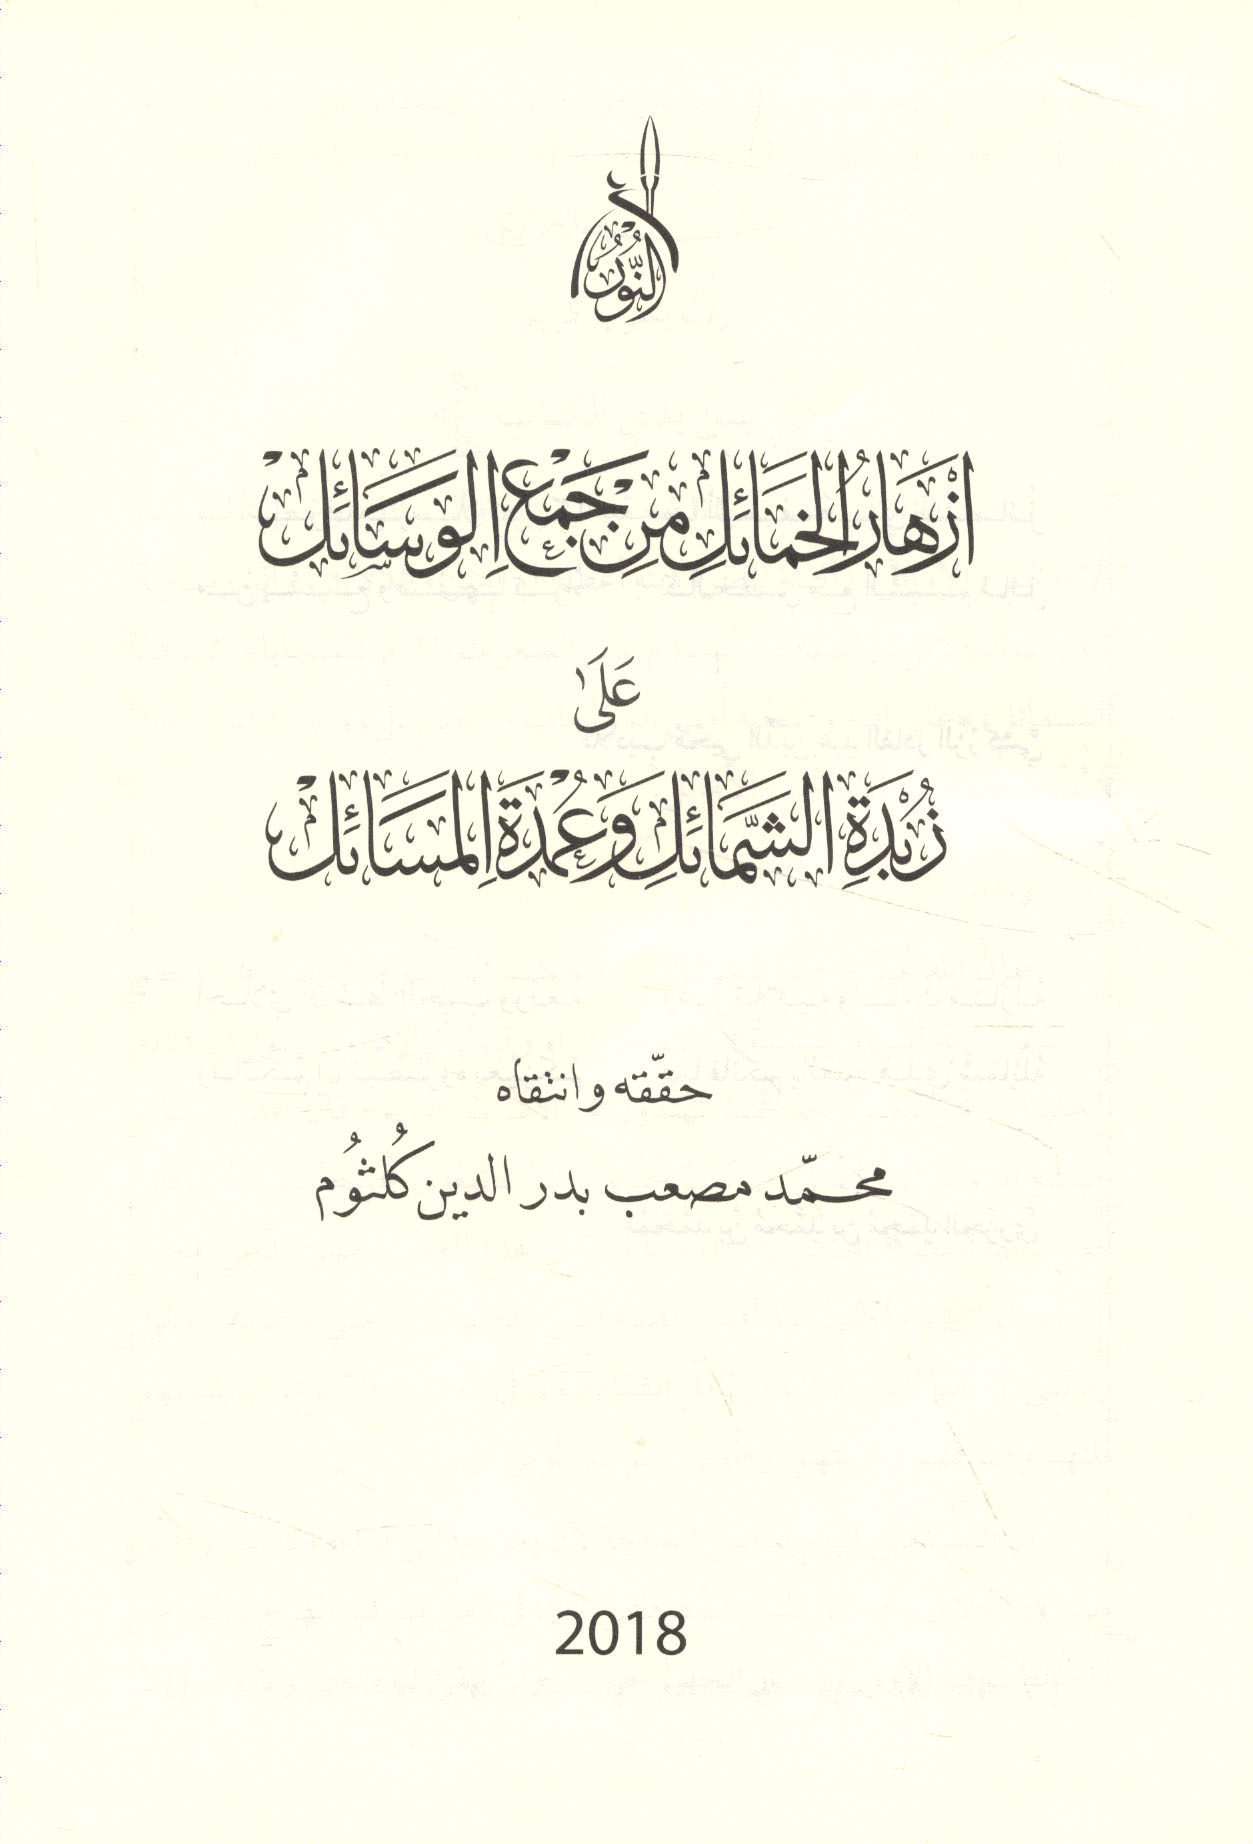 النُّور
ازْهَارُ الخمَائلِ مِنْ جَمْعِ الوسَائلْ
عَلَىٰ
زُبْدَةِ الشَّمائلِ وَعُمْدَةِ المسَائلْ
حقّقه وانتقاه
محمّد مصعب بدر الدين كُلثُوم
2018